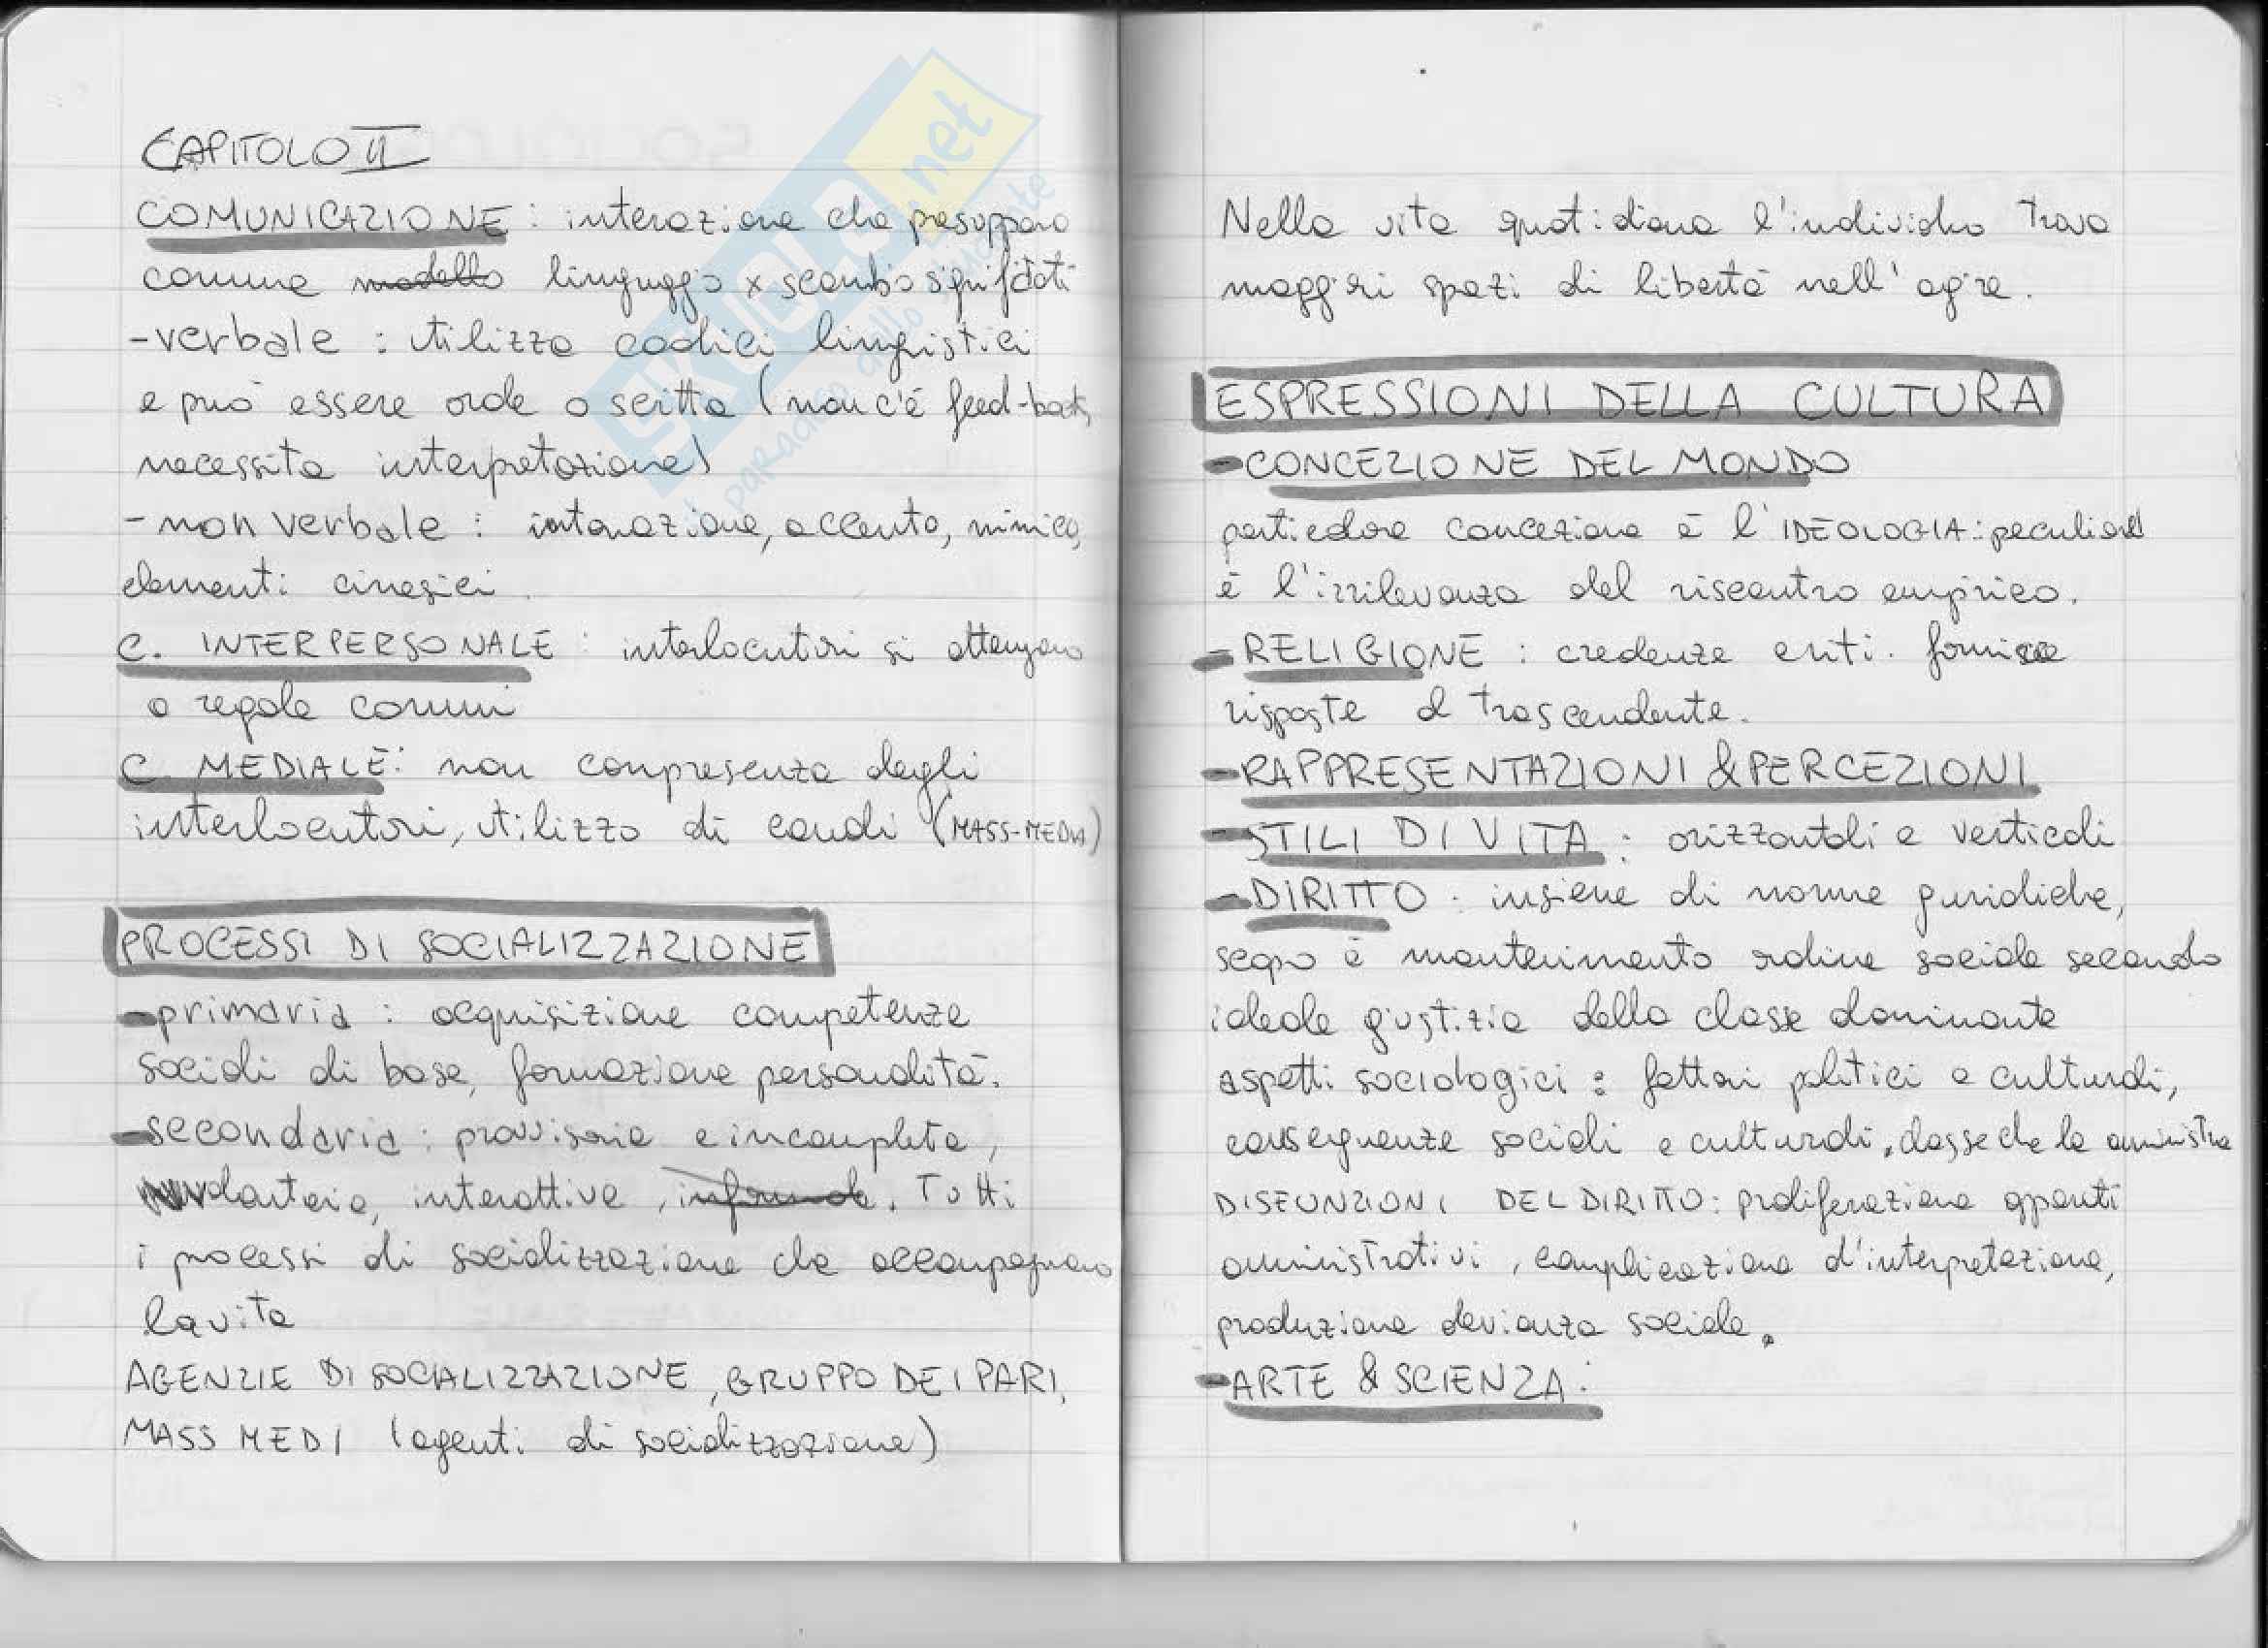 CAPITOLO II
COMUNICAZIONE : interazione che presuppone
comune modello linguaggio x scambio significati
-verbale : utilizza codici linguistici
e può essere orale o scritta (non c'è feed-back,
necessita interpretazione)
- non verbale : intonazione, accento, mimica,
elementi cinesici.
C. INTERPERSONALE : interlocutori si attengono
a regole comuni
C. MEDIALE: non compresenza degli
interlocutori, utilizzo di canali (MASS-MEDIA)
PROCESSI DI SOCIALIZZAZIONE
-primaria : acquisizione competenze
sociali di base, formazione personalità.
-secondaria : provvisoria e incompleta,
volontaria, interattiva, informale. Tutti
i processi di socializzazione che accompagnano
la vita
AGENZIE DI SOCIALIZZAZIONE, GRUPPO DEI PARI,
MASS MEDI (agenti di socializzazione)
Nella vita quotidiana l'individuo trova
maggiori spazi di libertà nell'agire.
ESPRESSIONI DELLA CULTURA
-CONCEZIONE DEL MONDO
particolare concezione è l'IDEOLOGIA: peculiare
è l'irrilevanza del riscontro empirico.
-RELIGIONE : credenze e riti. fornisce
risposte al trascendente.
-RAPPRESENTAZIONI & PERCEZIONI
-STILI DI VITA : orizzontali e verticali
-DIRITTO : insieme di norme giuridiche,
scopo è mantenimento ordine sociale secondo
ideale giustizia della classe dominante
aspetti sociologici : fattori politici e culturali,
conseguenze sociali e culturali, classe che la amministra
DISFUNZIONI DEL DIRITTO: proliferazione apparati
amministrativi, complicazione d'interpretazione,
produzione devianza sociale.
-ARTE & SCIENZA :
SKUOLA.net
il paradiso dello studente